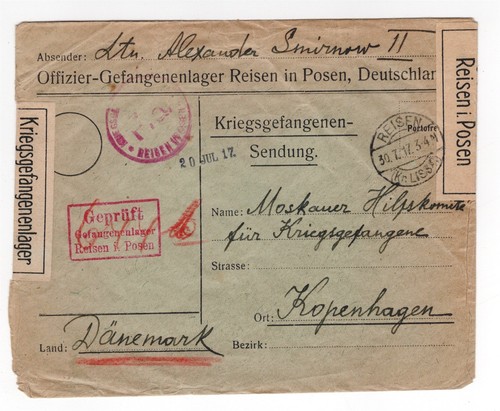 Absender: Ltn. Alexander Smirnow II
Offizier-Gefangenenlager Reisen in Posen, Deutschlan
Reisen i. Posen
Kriegsgefangenenlager
REISEN
20 JUL 17.
Kriegsgefangenen-
Sendung.
Portofre
REISEN
30.7.17. 3-4 N
(Kr. LISSA)
Geprüft
Gefangenenlager
Reisen i. Posen
Name: Moskauer Hilfskomite
für Kriegsgefangene
Strasse:
Ort: Kopenhagen
Land: Dänemark
Bezirk: